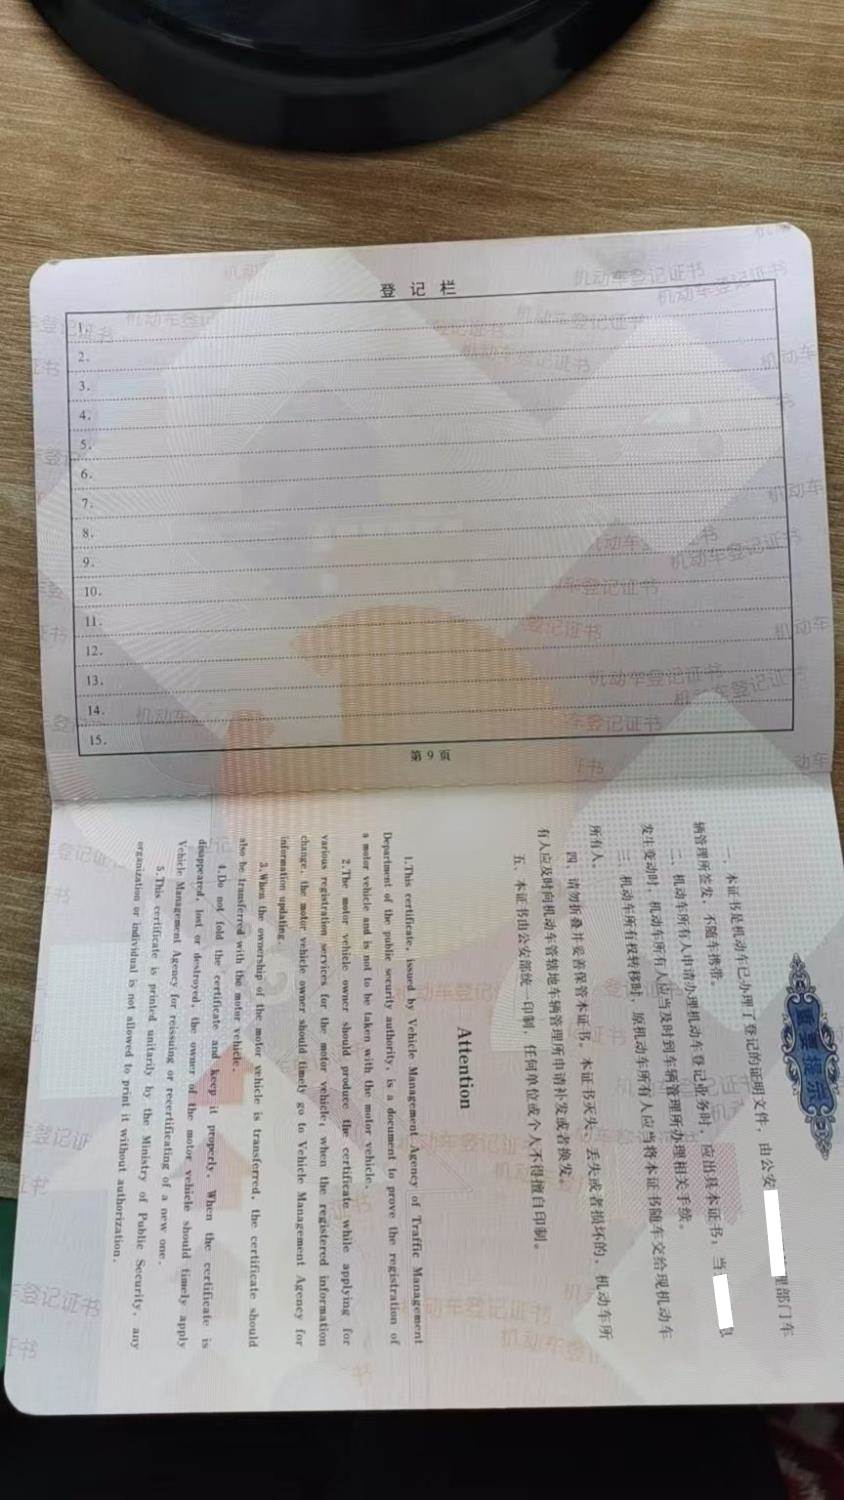 登记栏
1.
2.
3.
4.
5.
6.
7.
8.
9.
10.
11.
12.
13.
14.
15.
第9页
重要提示
一、本证书是机动车已办理了登记的证明文件，由公安 理部门车
辆管理所签发，不随车携带。
二、机动车所有人申请办理机动车登记业务时，应出具本证书；当
发生变动时，机动车所有人应当及时到车辆管理所办理相关手续。
三、机动车所有权转移时，原机动车所有人应当将本证书随车交给现机动车
所有人。
四、请勿折叠并妥善保管本证书。本证书灭失、丢失或者损坏的，机动车所
有人应及时向机动车管辖地车辆管理所申请补发或者换发。
五、本证书由公安部统一印制，任何单位或个人不得擅自印制。
Attention
1.This certificate, issued by Vehicle Management Agency of Traffic Management
Department of the public security authority, is a document to prove the registration of
a motor vehicle and is not to be taken with the motor vehicle.
2.The motor vehicle owner should produce the certificate while applying for
various registration services for the motor vehicle; when the registered information
change, the motor vehicle owner should timely go to Vehicle Management Agency for
information updating.
3.When the ownership of the motor vehicle is transferred, the certificate should
also be transferred with the motor vehicle.
4.Do not fold the certificate and keep it properly. When the certificate is
disappeared, lost or destroyed, the owner of the motor vehicle should timely apply
Vehicle Management Agency for reissuing or recertificating of a new one.
5.This certificate is printed unitarily by the Ministry of Public Security, any
organization or individual is not allowed to print it without authorization.